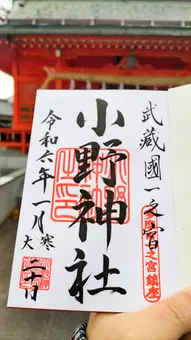 武蔵國一之宮
小野神社
令和六年一月
大寒
二十日